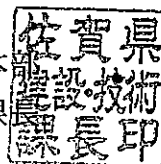 佐賀県
建設・技術
課長印